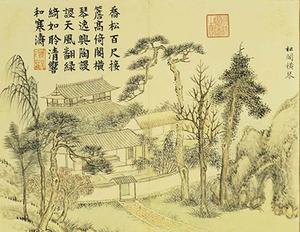 喬松百尺接
簷高倚閣橫
琴逸興陶謖
謖天風翻綠
綺如聆清響
和寒濤
松閣橫琴